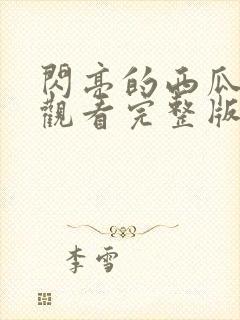 閃亮的西瓜
觀看完整版
李雪